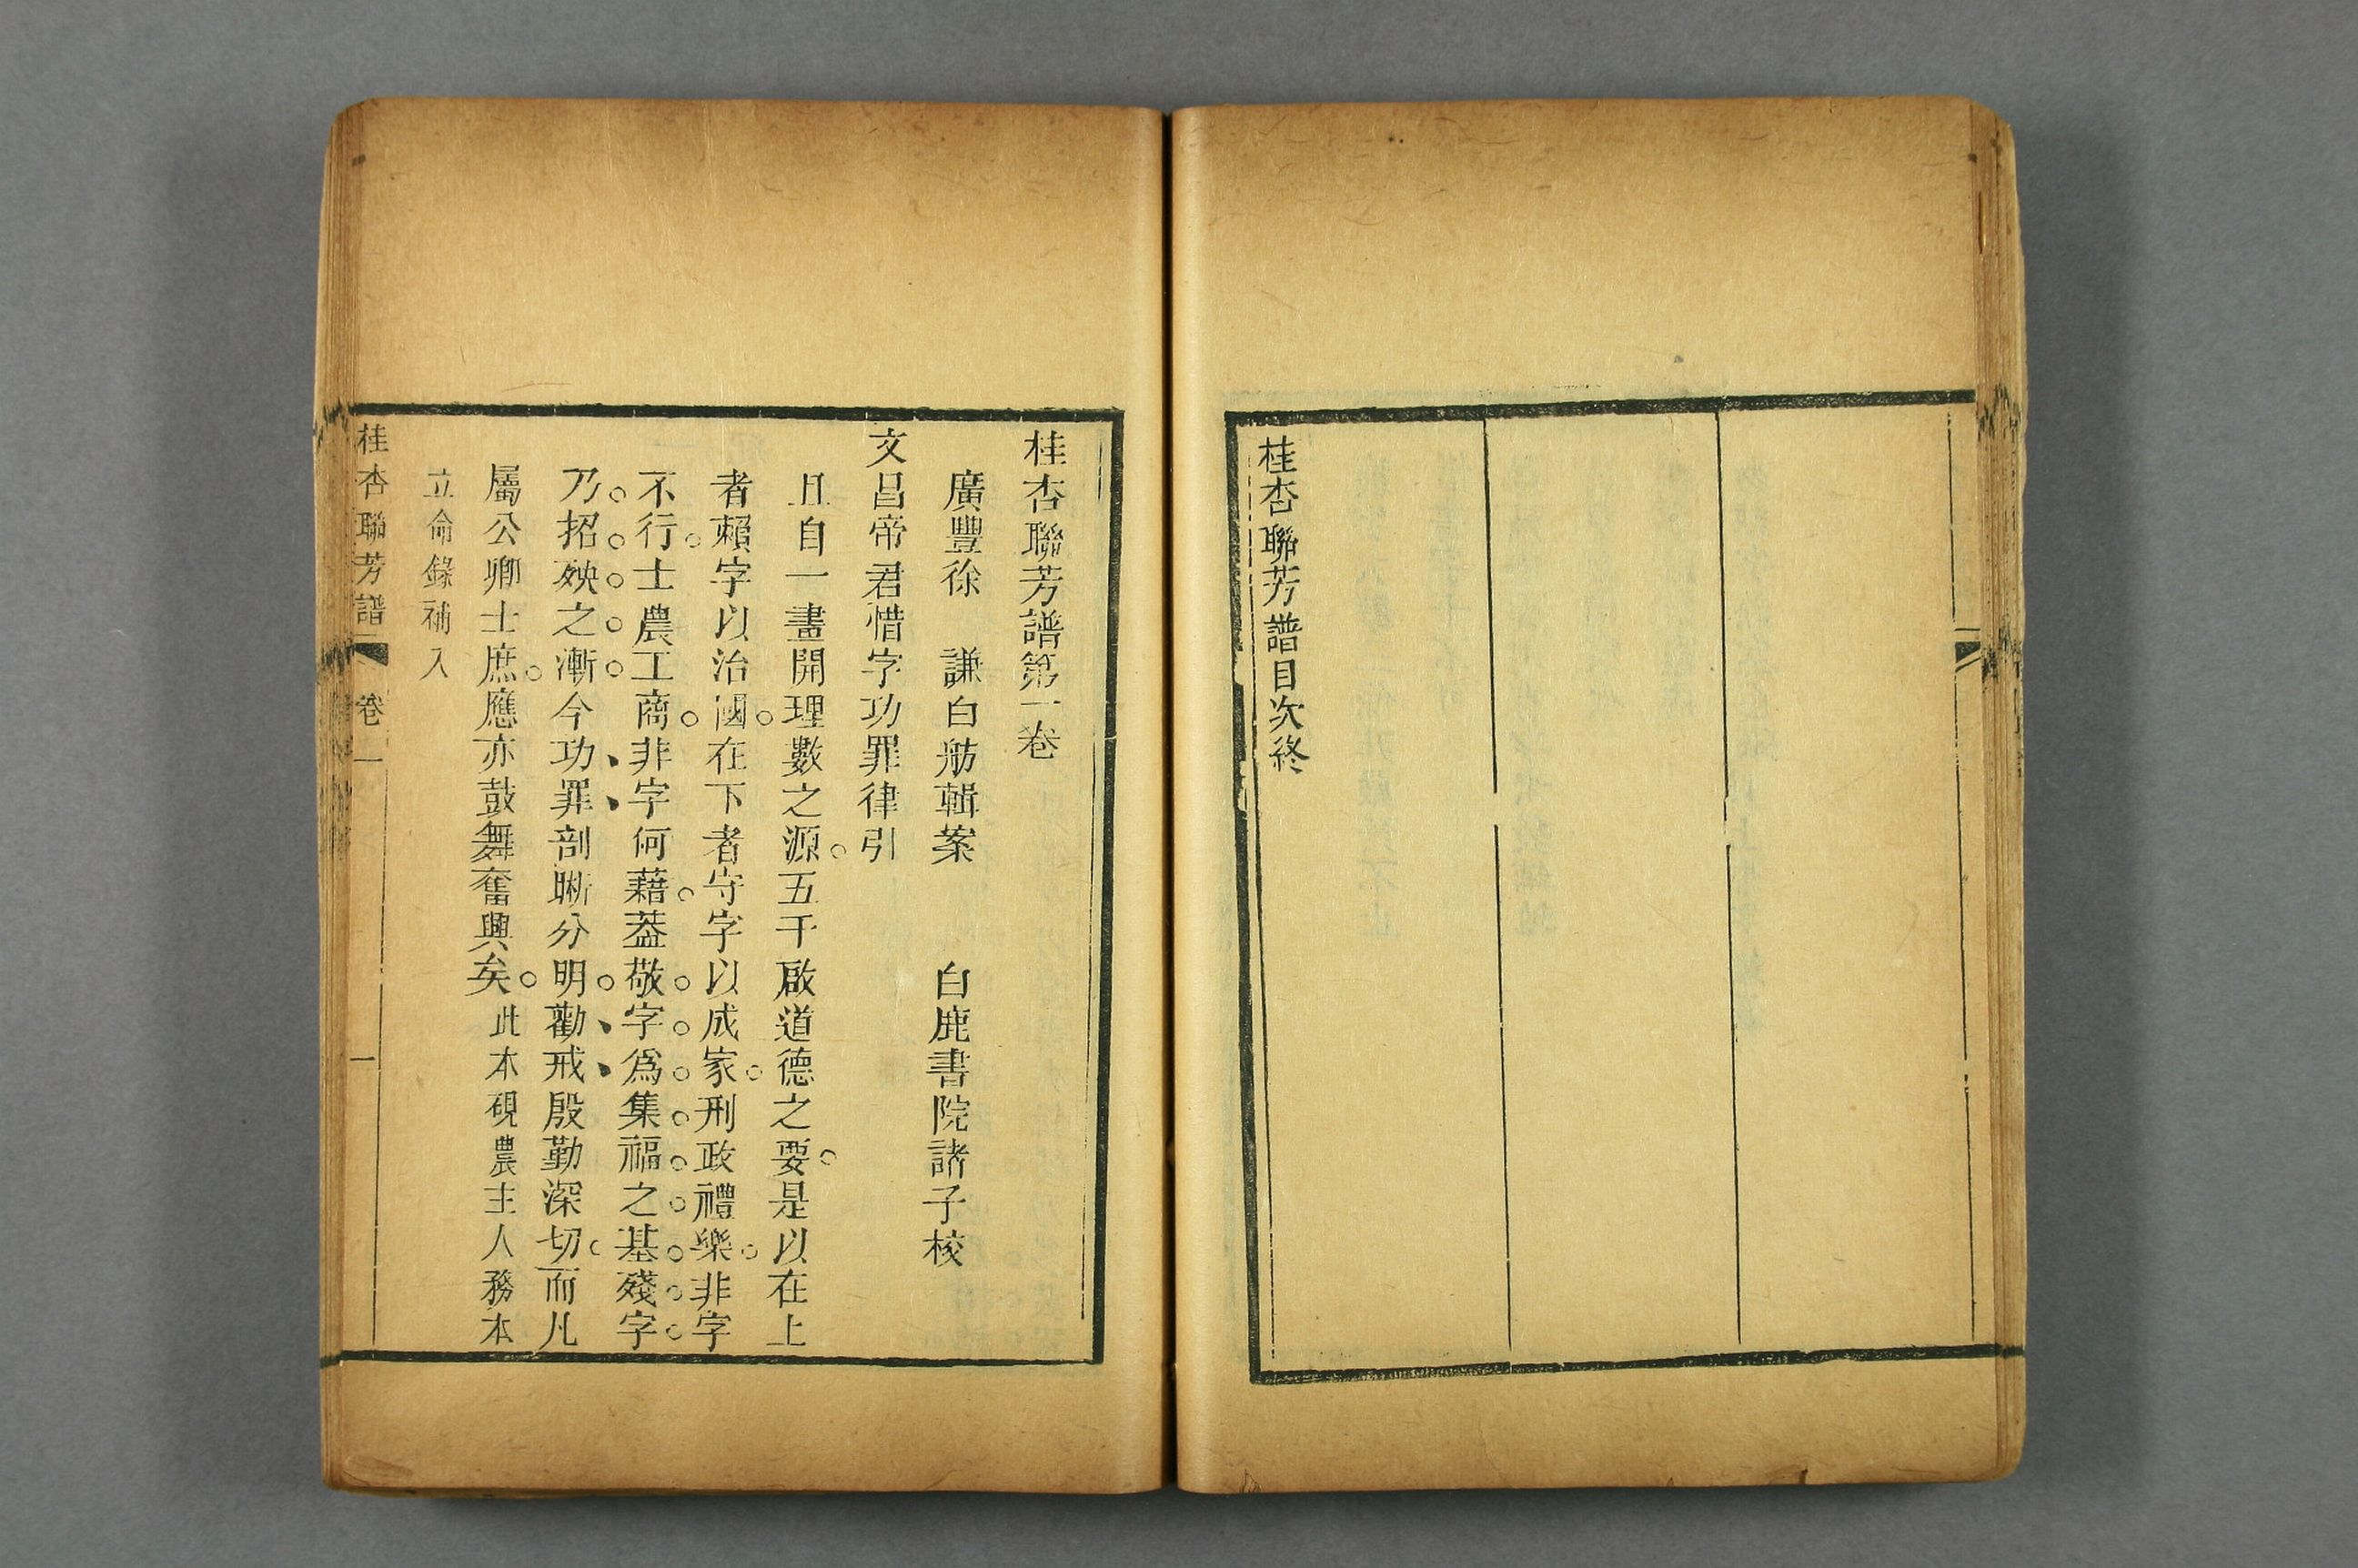 桂杏聯芳譜目次終
桂杏聯芳譜第一卷
廣豐徐　謙白舫輯案　　白鹿書院諸子校
文昌帝君惜字功罪律引
且自一畫開理數之源。五千啟道德之要。是以在上
者賴字以治國。在下者守字以成家。刑政禮樂。非字
不行。士農工商。非字何藉。葢敬字爲集福之基。殘字
乃招殃之漸。今功罪剖晰分明。勸戒殷勤深切。而凡
屬公卿士庶。應亦鼓舞奮興矣。此本硯農主人務本
立命錄補入
桂杏聯芳譜　卷一　一